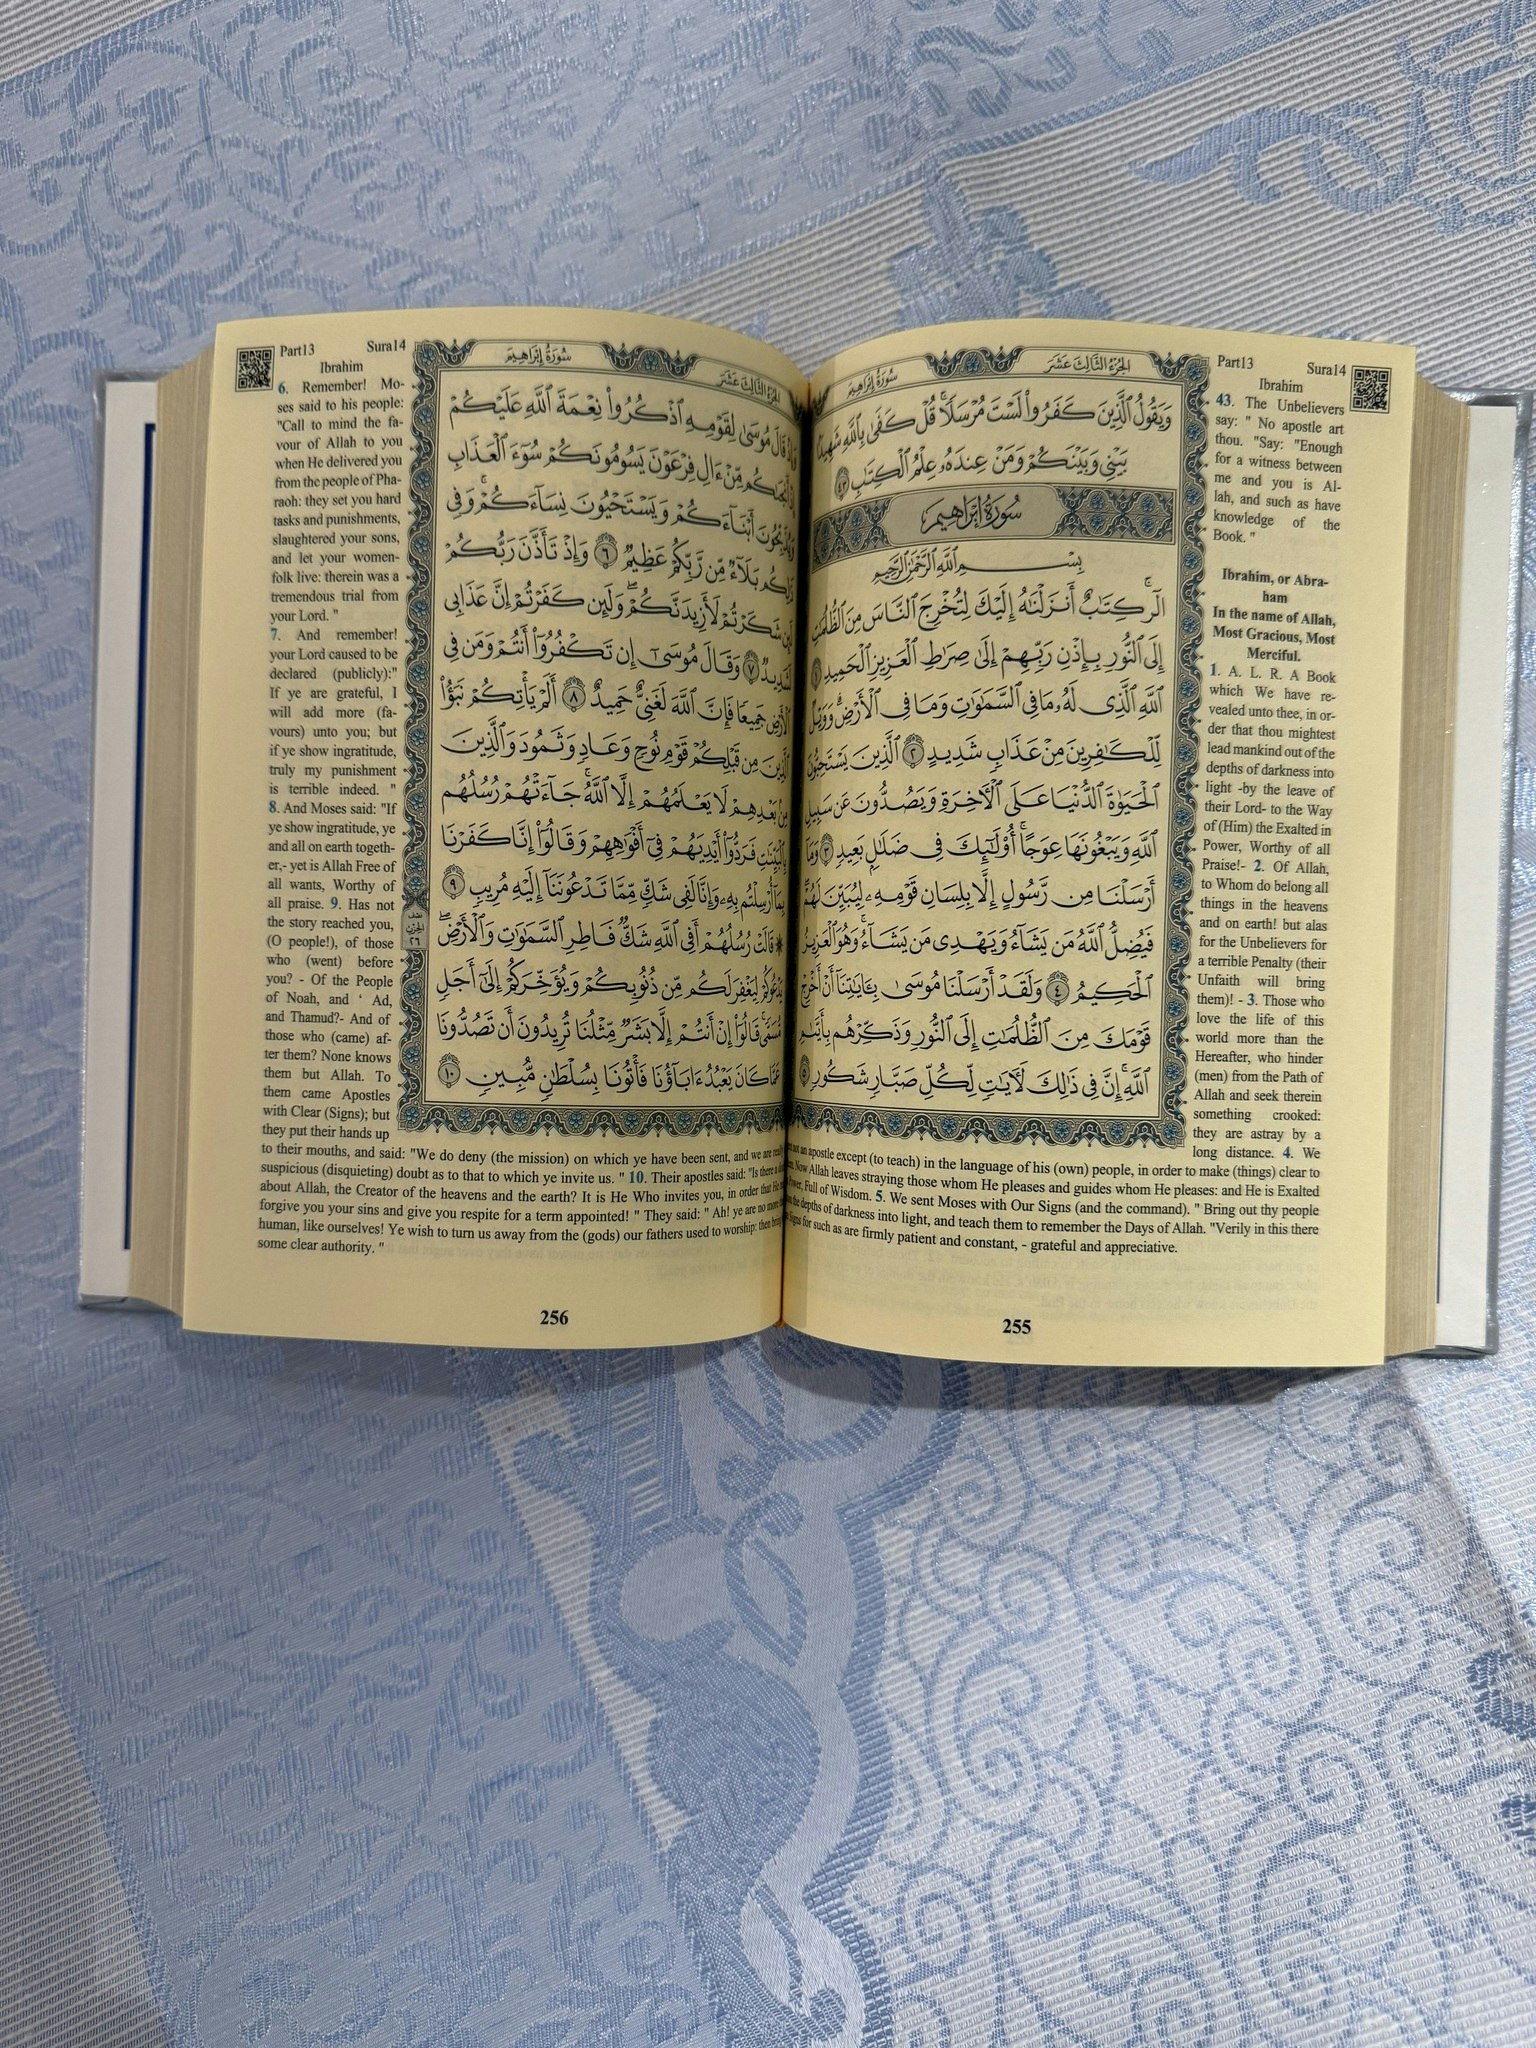 Part13 Sura14
Ibrahim
الجزء الثالث عشر
سورة إبراهيم
وَيَقُولُ ٱلَّذِينَ كَفَرُوا۟ لَسْتَ مُرْسَلًا ۚ قُلْ كَفَىٰ بِٱللَّهِ شَهِيدًۢا
بَيْنِى وَبَيْنَكُمْ وَمَنْ عِندَهُۥ عِلْمُ ٱلْكِتَٰبِ ٤٣
سُورَةُ إِبْرَاهِيمَ
بِسْمِ ٱللَّهِ ٱلرَّحْمَٰنِ ٱلرَّحِيمِ
الٓر ۚ كِتَٰبٌ أَنزَلْنَٰهُ إِلَيْكَ لِتُخْرِجَ ٱلنَّاسَ مِنَ ٱلظُّلُمَٰتِ
إِلَى ٱلنُّورِ بِإِذْنِ رَبِّهِمْ إِلَىٰ صِرَٰطِ ٱلْعَزِيزِ ٱلْحَمِيدِ ١
ٱللَّهِ ٱلَّذِى لَهُۥ مَا فِى ٱلسَّمَٰوَٰتِ وَمَا فِى ٱلْأَرْضِ ۗ وَوَيْلٌ
لِّلْكَٰفِرِينَ مِنْ عَذَابٍ شَدِيدٍ ٢ ٱلَّذِينَ يَسْتَحِبُّونَ
ٱلْحَيَوٰةَ ٱلدُّنْيَا عَلَى ٱلْءَاخِرَةِ وَيَصُدُّونَ عَن سَبِيلِ
ٱللَّهِ وَيَبْغُونَهَا عِوَجًا ۚ أُو۟لَٰٓئِكَ فِى ضَلَٰلٍۭ بَعِيدٍ ٣ وَمَآ
أَرْسَلْنَا مِن رَّسُولٍ إِلَّا بِلِسَانِ قَوْمِهِۦ لِيُبَيِّنَ لَهُمْ ۖ
فَيُضِلُّ ٱللَّهُ مَن يَشَآءُ وَيَهْدِى مَن يَشَآءُ ۚ وَهُوَ ٱلْعَزِيزُ
ٱلْحَكِيمُ ٤ وَلَقَدْ أَرْسَلْنَا مُوسَىٰ بِـَٔايَٰتِنَآ أَنْ أَخْرِجْ
قَوْمَكَ مِنَ ٱلظُّلُمَٰتِ إِلَى ٱلنُّورِ وَذَكِّرْهُم بِأَيَّىٰمِ
ٱللَّهِ ۚ إِنَّ فِى ذَٰلِكَ لَءَايَٰتٍ لِّكُلِّ صَبَّارٍ شَكُورٍ ٥
43. The Unbelievers
say: " No apostle art
thou. "Say: "Enough
for a witness between
me and you is Al-
lah, and such as have
knowledge of the
Book. "
Ibrahim, or Abra-
ham
In the name of Allah,
Most Gracious, Most
Merciful.
1. A. L. R. A Book
which We have re-
vealed unto thee, in or-
der that thou mightest
lead mankind out of the
depths of darkness into
light -by the leave of
their Lord- to the Way
of (Him) the Exalted in
Power, Worthy of all
Praise!- 2. Of Allah,
to Whom do belong all
things in the heavens
and on earth! but alas
for the Unbelievers for
a terrible Penalty (their
Unfaith will bring
them)! - 3. Those who
love the life of this
world more than the
Hereafter, who hinder
(men) from the Path of
Allah and seek therein
something crooked:
they are astray by a
long distance. 4. We
not an apostle except (to teach) in the language of his (own) people, in order to make (things) clear to
Now Allah leaves straying those whom He pleases and guides whom He pleases: and He is Exalted
Full of Wisdom. 5. We sent Moses with Our Signs (and the command). " Bring out thy people
the depths of darkness into light, and teach them to remember the Days of Allah. "Verily in this there
Signs for such as are firmly patient and constant, - grateful and appreciative.
255
Part13 Sura14
Ibrahim
سورة إبراهيم
الجزء الثالث عشر
قَالَ مُوسَىٰ لِقَوْمِهِ ٱذْكُرُوا۟ نِعْمَةَ ٱللَّهِ عَلَيْكُمْ
أَنجَىٰكُم مِّنْ ءَالِ فِرْعَوْنَ يَسُومُونَكُمْ سُوٓءَ ٱلْعَذَابِ
أَبْنَآءَكُمْ وَيَسْتَحْيُونَ نِسَآءَكُمْ ۚ وَفِى
بَلَآءٌ مِّن رَّبِّكُمْ عَظِيمٌ ٦ وَإِذْ تَأَذَّنَ رَبُّكُمْ
شَكَرْتُمْ لَأَزِيدَنَّكُمْ ۖ وَلَئِن كَفَرْتُمْ إِنَّ عَذَابِى
لَشَدِيدٌ ٧ وَقَالَ مُوسَىٰٓ إِن تَكْفُرُوٓا۟ أَنتُمْ وَمَن فِى
ٱلْأَرْضِ جَمِيعًا فَإِنَّ ٱللَّهَ لَغَنِىٌّ حَمِيدٌ ٨ أَلَمْ يَأْتِكُمْ نَبَؤُا۟
ٱلَّذِينَ مِن قَبْلِكُمْ قَوْمِ نُوحٍ وَعَادٍ وَثَمُودَ ۛ وَٱلَّذِينَ
مِنۢ بَعْدِهِمْ ۛ لَا يَعْلَمُهُمْ إِلَّا ٱللَّهُ ۚ جَآءَتْهُمْ رُسُلُهُم
بِٱلْبَيِّنَٰتِ فَرَدُّوٓا۟ أَيْدِيَهُمْ فِىٓ أَفْوَٰهِهِمْ وَقَالُوٓا۟ إِنَّا كَفَرْنَا
بِمَآ أُرْسِلْتُم بِهِۦ وَإِنَّا لَفِى شَكٍّ مِّمَّا تَدْعُونَنَآ إِلَيْهِ مُرِيبٍ ٩
۞ قَالَتْ رُسُلُهُمْ أَفِى ٱللَّهِ شَكٌّ فَاطِرِ ٱلسَّمَٰوَٰتِ وَٱلْأَرْضِ ۖ
يَدْعُوكُمْ لِيَغْفِرَ لَكُم مِّن ذُنُوبِكُمْ وَيُؤَخِّرَكُمْ إِلَىٰٓ أَجَلٍ
مُّسَمًّى ۚ قَالُوٓا۟ إِنْ أَنتُمْ إِلَّا بَشَرٌ مِّثْلُنَا تُرِيدُونَ أَن تَصُدُّونَا
عَمَّا كَانَ يَعْبُدُ ءَابَآؤُنَا فَأْتُونَا بِسُلْطَٰنٍ مُّبِينٍ ١٠
نصف
الحزب
٢٦
6. Remember! Mo-
ses said to his people:
"Call to mind the fa-
vour of Allah to you
when He delivered you
from the people of Pha-
raoh: they set you hard
tasks and punishments,
slaughtered your sons,
and let your women-
folk live: therein was a
tremendous trial from
your Lord. "
7. And remember!
your Lord caused to be
declared (publicly):"
If ye are grateful, I
will add more (fa-
vours) unto you; but
if ye show ingratitude,
truly my punishment
is terrible indeed. "
8. And Moses said: "If
ye show ingratitude, ye
and all on earth togeth-
er,- yet is Allah Free of
all wants, Worthy of
all praise. 9. Has not
the story reached you,
(O people!), of those
who (went) before
you? - Of the People
of Noah, and ‘ Ad,
and Thamud?- And of
those who (came) af-
ter them? None knows
them but Allah. To
them came Apostles
with Clear (Signs); but
they put their hands up
to their mouths, and said: "We do deny (the mission) on which ye have been sent, and we are really
suspicious (disquieting) doubt as to that to which ye invite us. " 10. Their apostles said: "Is there a
about Allah, the Creator of the heavens and the earth? It is He Who invites you, in order that He
forgive you your sins and give you respite for a term appointed! " They said: " Ah! ye are no more
human, like ourselves! Ye wish to turn us away from the (gods) our fathers used to worship: then bring
some clear authority. "
256